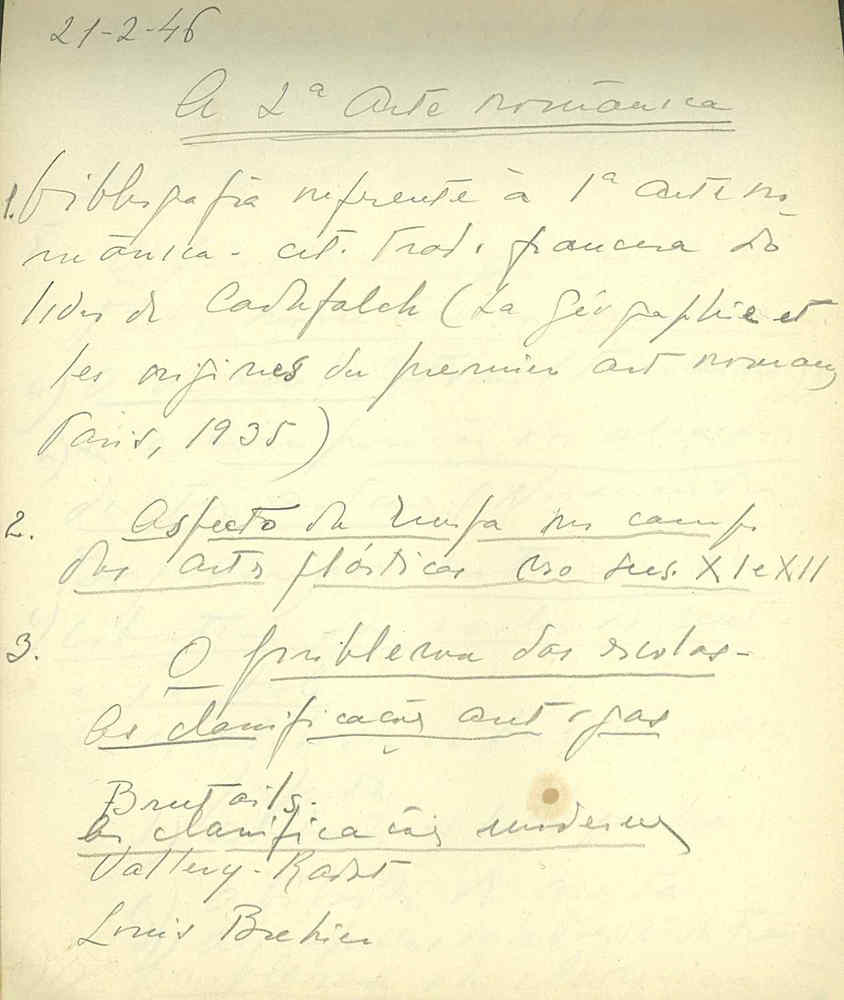 21-2-46
A 2ª Arte românica
1. bibliografia referente à 1ª arte ro-
mânica - cit. Trad. francesa do
livro de Cadafalch (La géographie et
les origines du premier art roman,
Paris, 1935)
2. Aspecto da Europa no campo
das artes plásticas no secs. XI e XII
3. O problema das escolas -
As classificações antigas
Brutails.
As classificações modernas
Vallery-Radot
Louis Brehier